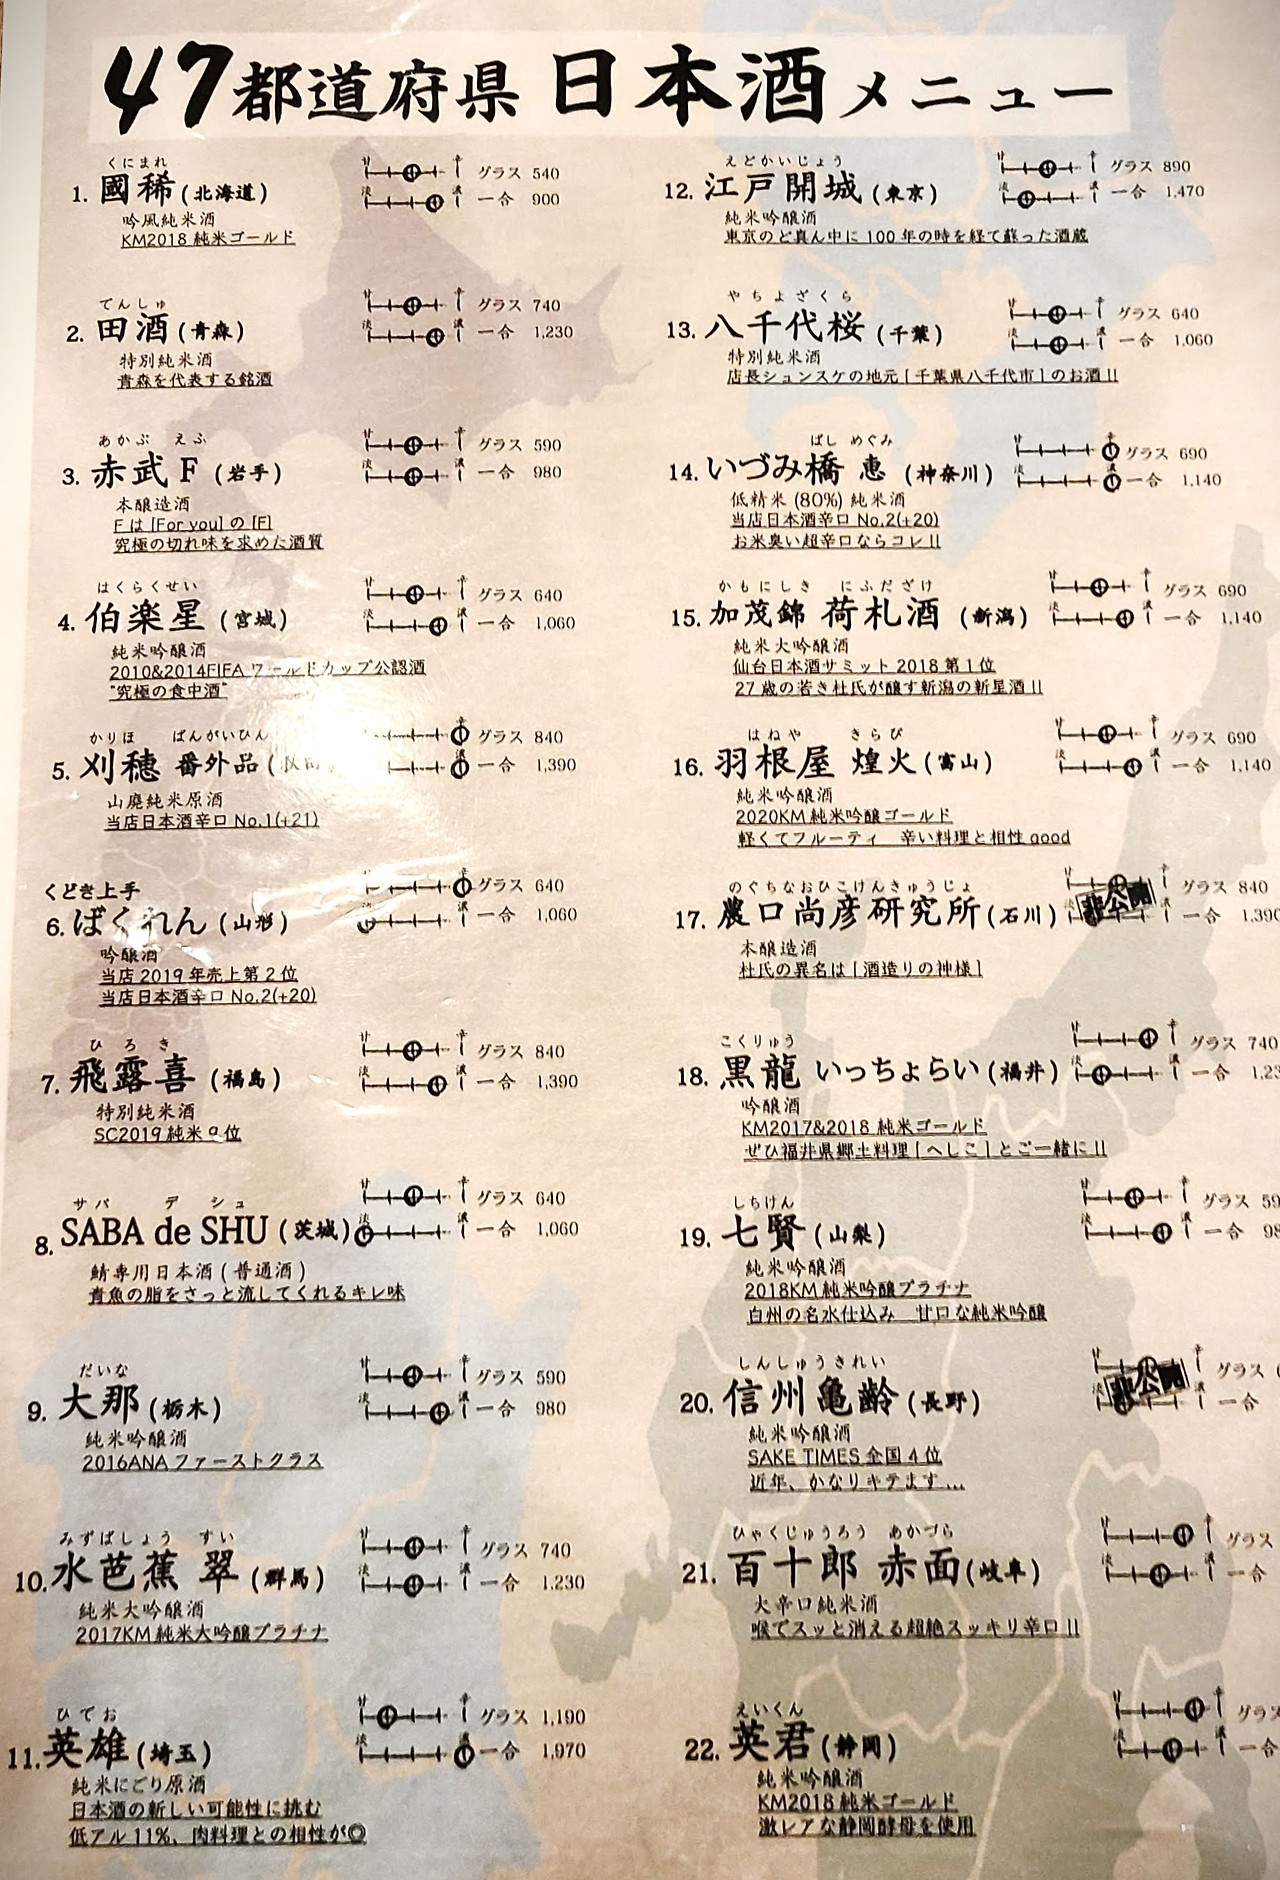 47都道府県 日本酒メニュー
くにまれ
1. 國稀(北海道) 甘 辛 グラス 540
淡 濃 一合 900
吟風純米酒
KM2018 純米ゴールド
でんしゅ
2. 田酒(青森) 甘 辛 グラス 740
淡 濃 一合 1,230
特別純米酒
青森を代表する銘酒
あかぶ えふ
3. 赤武 F (岩手) 甘 辛 グラス 590
淡 濃 一合 980
本醸造酒
F は「For you」の「F」
究極の切れ味を求めた酒質
はくらくせい
4. 伯楽星(宮城) 甘 辛 グラス 640
淡 濃 一合 1,060
純米吟醸酒
2010&2014FIFA ワールドカップ公認酒
"究極の食中酒"
かりほ ばんがいひん
5. 刈穂 番外品( 辛 グラス 840
濃 一合 1,390
山廃純米原酒
当店日本酒辛口 No.1(+21)
くどき上手
6. ばくれん(山形) 甘 辛 グラス 640
淡 濃 一合 1,060
吟醸酒
当店 2019 年売上第 2 位
当店日本酒辛口 No.2(+20)
ひろき
7. 飛露喜(福島) 甘 辛 グラス 840
淡 濃 一合 1,390
特別純米酒
SC2019 純米 9 位
サバ デ シュ
8. SABA de SHU(茨城) 甘 辛 グラス 640
淡 濃 一合 1,060
鯖専用日本酒(普通酒)
青魚の脂をさっと流してくれるキレ味
だいな
9. 大那(栃木) 甘 辛 グラス 590
淡 濃 一合 980
純米吟醸酒
2016ANA ファーストクラス
みずばしょう すい
10. 水芭蕉 翠(群馬) 甘 辛 グラス 740
淡 濃 一合 1,230
純米大吟醸酒
2017KM 純米大吟醸プラチナ
ひでお
11. 英雄(埼玉) 甘 辛 グラス 1,190
淡 濃 一合 1,970
純米にごり原酒
日本酒の新しい可能性に挑む
低アル 11%、肉料理との相性が◎
えどかいじょう
12. 江戸開城(東京) 甘 辛 グラス 890
淡 濃 一合 1,470
純米吟醸酒
東京のど真ん中に 100 年の時を経て蘇った酒蔵
やちよざくら
13. 八千代桜(千葉) 甘 辛 グラス 640
淡 濃 一合 1,060
特別純米酒
店長シュンスケの地元「千葉県八千代市」のお酒!!
ばし めぐみ
14. いづみ橋 恵 (神奈川) 甘 辛 グラス 690
淡 濃 一合 1,140
低精米 (80%) 純米酒
当店日本酒辛口 No.2(+20)
お米臭い超辛口ならコレ!!
かもにしき にふだざけ
15. 加茂錦 荷札酒 (新潟) 甘 辛 グラス 690
淡 濃 一合 1,140
純米大吟醸酒
仙台日本酒サミット 2018 第 1 位
27 歳の若き杜氏が醸す新潟の新星酒!!
はねや きらび
16. 羽根屋 煌火(富山) 甘 辛 グラス 690
淡 濃 一合 1,140
純米吟醸酒
2020KM 純米吟醸ゴールド
軽くてフルーティ 辛い料理と相性 good
のぐちなおひこけんきゅうじょ
17. 農口尚彦研究所(石川) 甘 非公開 辛 グラス 840
淡 濃 一合 1,390
本醸造酒
杜氏の異名は「酒造りの神様」
こくりゅう
18. 黒龍 いっちょらい(福井) 甘 辛 グラス 740
淡 濃 一合 1,23
吟醸酒
KM2017&2018 純米ゴールド
ぜひ福井県郷土料理「へしこ」とご一緒に!!
しちけん
19. 七賢(山梨) 甘 辛 グラス 59
淡 濃 一合 98
純米吟醸酒
2018KM 純米吟醸プラチナ
白州の名水仕込み 甘口な純米吟醸
しんしゅうきれい
20. 信州亀齢(長野) 甘 非公開 辛 グラス
淡 濃 一合
純米吟醸酒
SAKE TIMES 全国 4 位
近年、かなりキテます...
ひゃくじゅうろう あかづら
21. 百十郎 赤面(岐阜) 甘 辛 グラス
淡 濃 一合
大辛口純米酒
喉でスッと消える超絶スッキリ辛口!!
えいくん
22. 英君(静岡) 甘 辛 グラス
淡 濃 一合
純米吟醸酒
KM2018 純米ゴールド
激レアな静岡酵母を使用